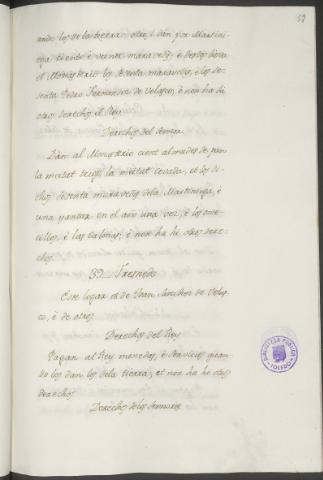 39
ando los de la tierra: otro si dan por Martini-
ega ciento é veinte maravedis, é destos lieva
el Monesterio los sesenta maravedis, é los se-
senta Pedro Fernandez de Velasco, é non ha hi
otros derechos el Rey.
Derechos del Señor
Dan al Monesterio cient almudes de pan
la meitat trigo, la meitat cevada, et los di-
chos sesenta maravedis dela Martiniega, é
una yantar en el año una vez, é los ome-
cillos, é las calonias; é non ha hi otros dere-
chos.
39
Este lugar es de Juan Sanchez de Velas-
co, é de otros
Derechos del Rey
Pagan al Rey monedas, é servicios quan-
do los dan los dela tierra; et non ha hi otros
derechos
Derechos de los Señores
BIBLIOTECA PUBLICA
TOLEDO